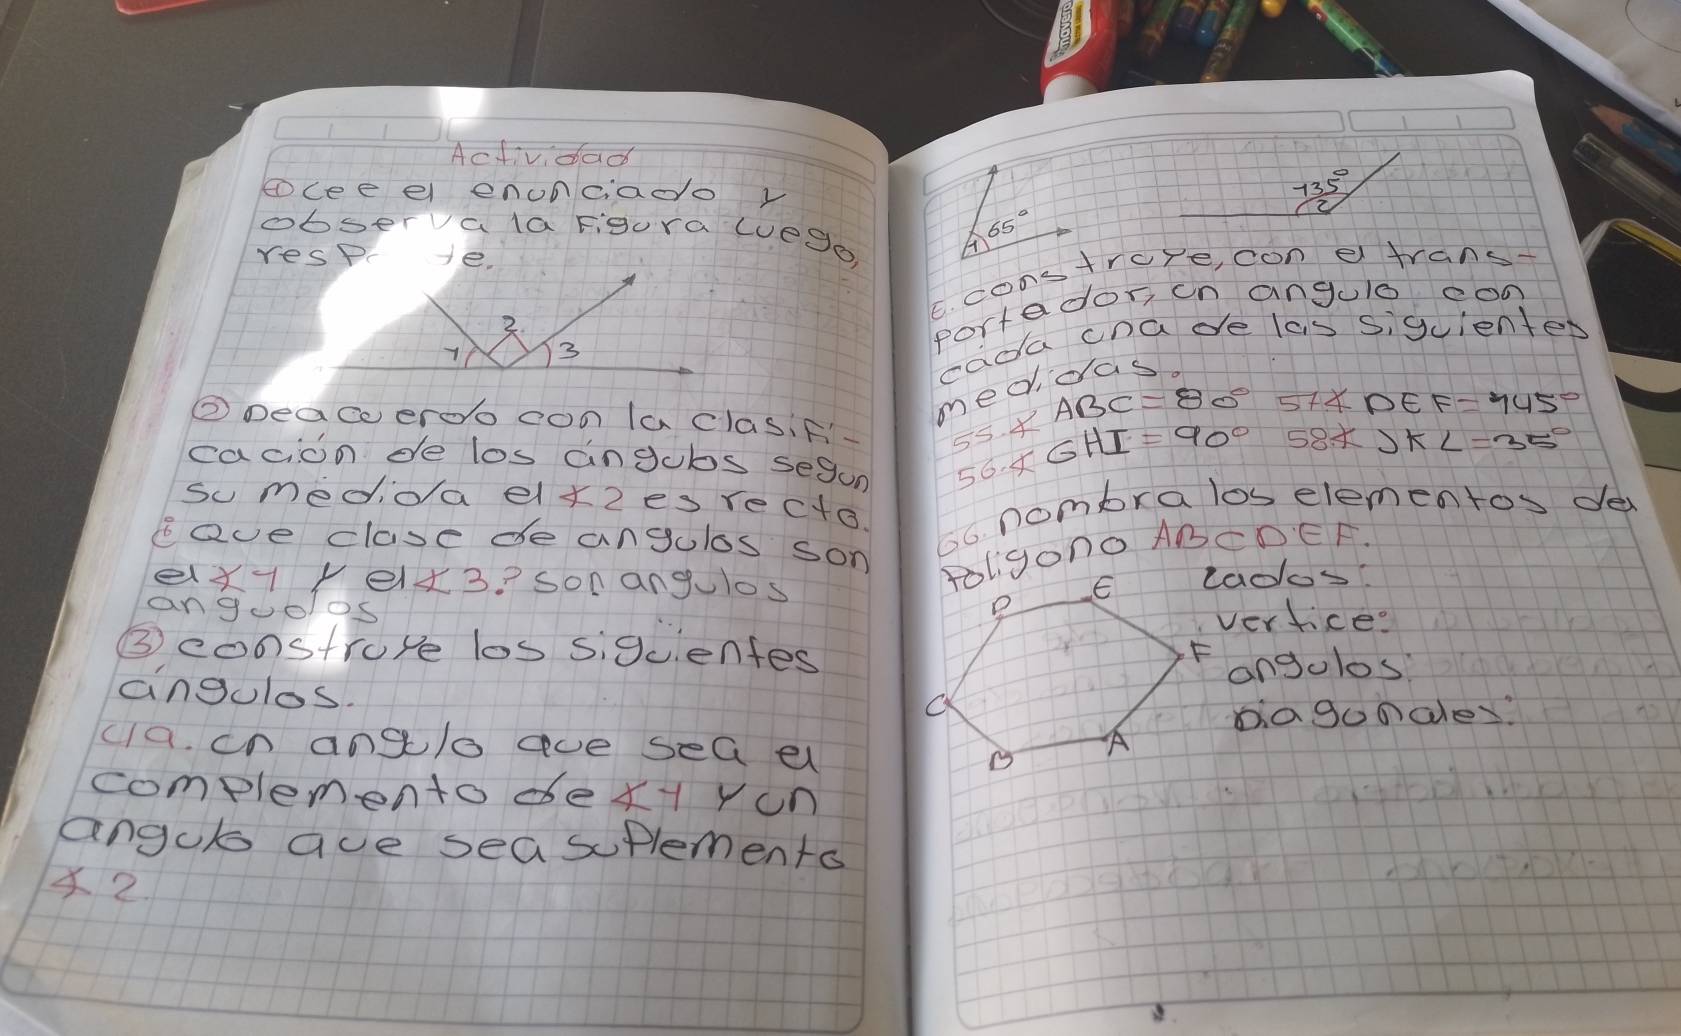 Actividad
① Lee el enunciado y
observa la Figura Luego,
2
1
3
② Deacuerdo con la clasifi-
cación de los ángulos segun
su medida el ∡2 es recto.
¿Que clase de angulos son
el ∡1 y el ∡3.? son angulos
angudos
③ construye los siguientes
ángulos.
49. un angulo que sea el
complemento de ∡1 y un
angulo que sea suplemento
∡2
1
65°
135°
2
E. construye, con el trans-
portador, un angulo con
cada una de las siguientes
medidas.
55. ∡ ABC = 80° 57∡ DEF = 145°
56. ∡ GHI = 90° 58∡ JKL = 35°
66. nombra los elementos del
Poligono ABCDEF.
Lados:
vertice:
angulos:
Diagonales:
D
E
F
C
B
A